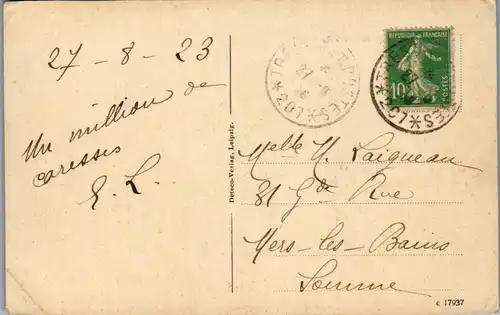 27 - 8 - 23
Un million de
caresses
E. L.
Detsco-Verlag, Leipzig.
*TRÉSOR ET POSTES*
27 - 8
*201*
REPUBLIQUE FRANÇAISE
10
POSTES
Melle M. Laigneau
31 Gde Rue
Mers-les-Bains
Somme
c 17937